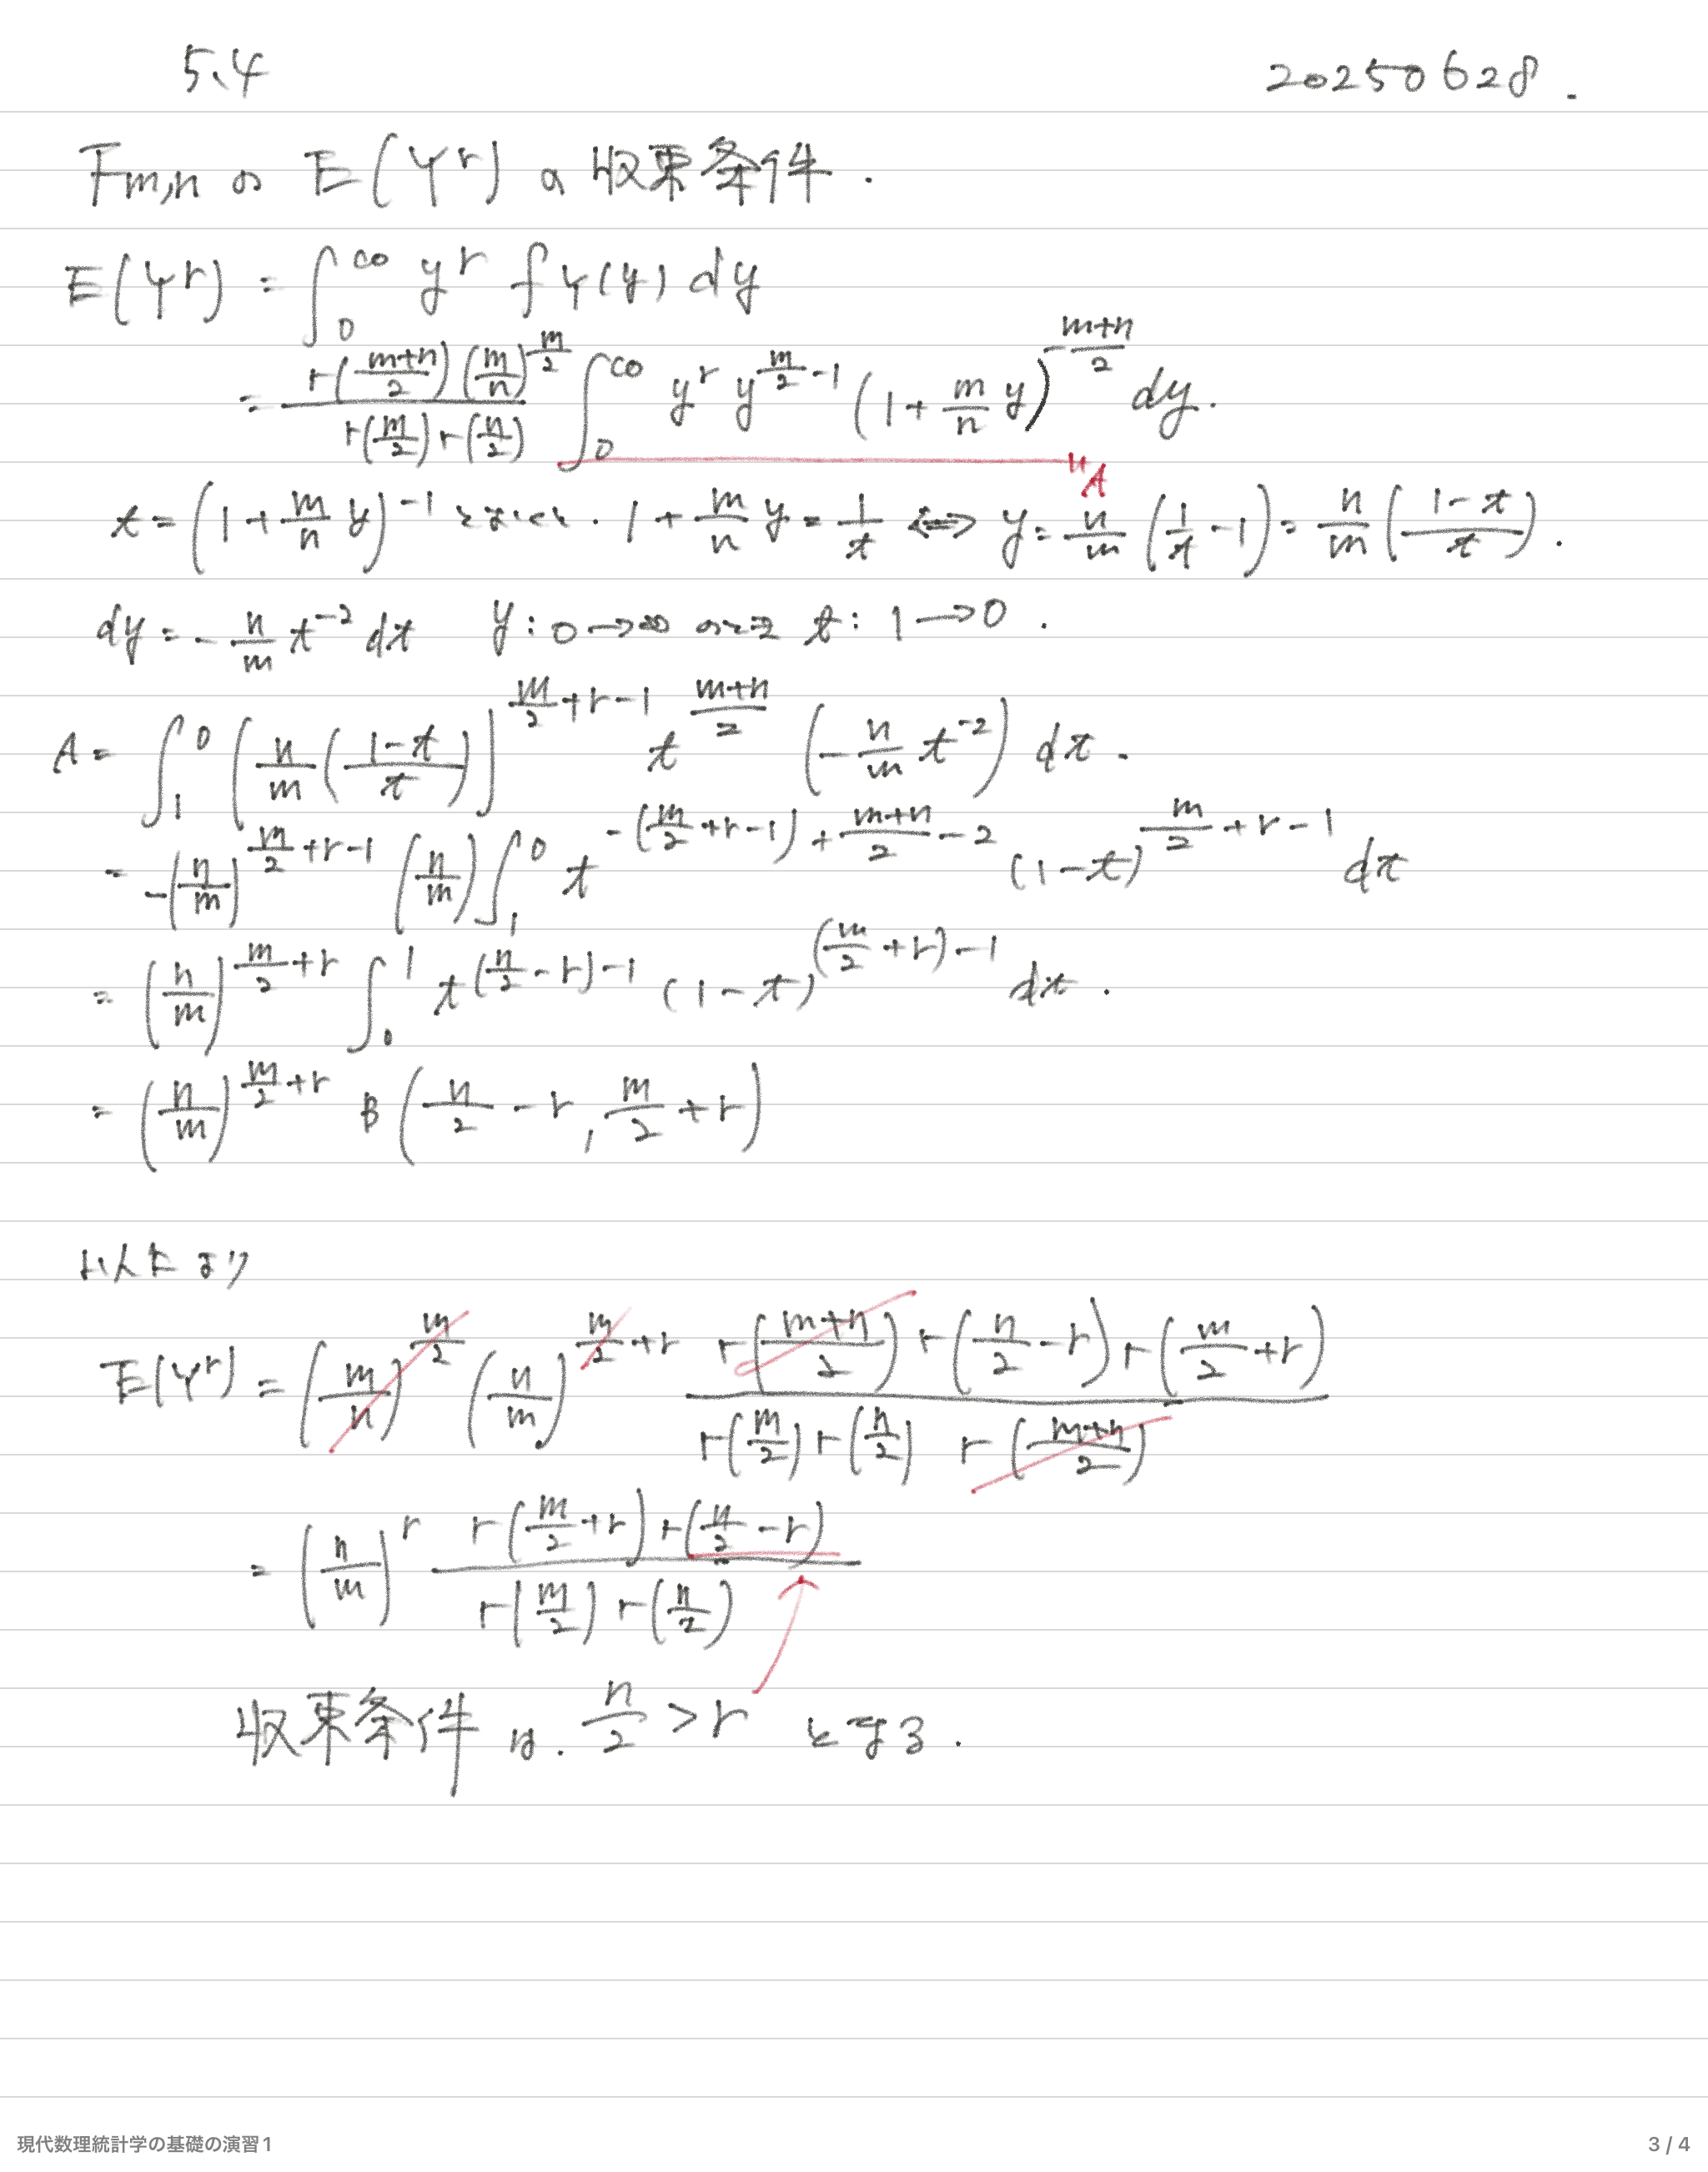 5.4 20250628.
Fm,n の E(Y^r) の収束条件.
E(Y^r) = ∫_0^∞ y^r f_Y(y) dy
= Γ((m+n)/2) (m/n)^(m/2) / Γ(m/2)Γ(n/2) ∫_0^∞ y^r y^(m/2 -1) (1 + m/n y)^(-(m+n)/2) dy.
"A
t = (1 + m/n y)^-1 とおくと. 1 + m/n y = 1/t ⟺ y = n/m (1/t - 1) = n/m ((1-t)/t).
dy = - n/m t^-2 dt y: 0→∞ のとき t: 1→0.
A = ∫_1^0 (n/m ((1-t)/t))^(m/2 + r-1) t^((m+n)/2) (- n/m t^-2) dt.
= -(n/m)^(m/2 + r-1) (n/m) ∫_1^0 t^(-(m/2 + r-1) + (m+n)/2 - 2) (1-t)^(m/2 + r-1) dt
= (n/m)^(m/2 + r) ∫_0^1 t^((n/2 - r)-1) (1-t)^((m/2 + r)-1) dt.
= (n/m)^(m/2 + r) B(n/2 - r, m/2 + r)
以上より
E(Y^r) = (m/n)^(m/2) (n/m)^(m/2 + r) Γ((m+n)/2) Γ(n/2 - r) Γ(m/2 + r) / Γ(m/2) Γ(n/2) Γ((m+n)/2)
= (n/m)^r Γ(m/2 + r) Γ(n/2 - r) / Γ(m/2) Γ(n/2)
収束条件は. n/2 > r となる.
現代数理統計学の基礎の演習1 3 / 4